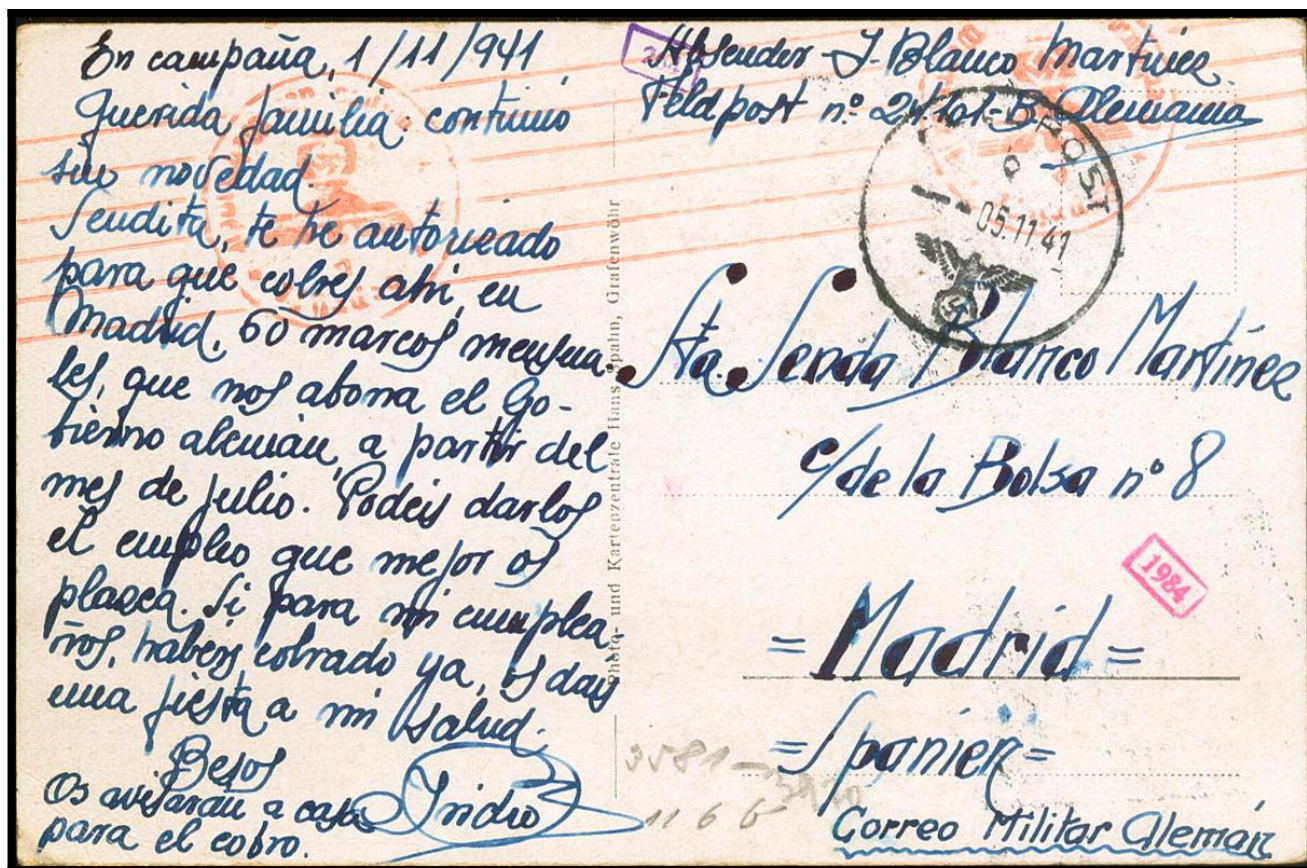 En campaña, 1/11/941
Querida familia: continúo
sin novedad.
Sendita, te he autorizado
para que cobres ahí, en
Madrid, 60 marcos mensua
les, que nos abona el Go-
bierno alemán, a partir del
mes de julio. Podeis darlos
el empleo que mejor os
plazca. Si para mi cumplea
ños, habeis cobrado ya, os dais
una fiesta a mi salud.
Besos
Isidro
Os avisarán a casa
para el cobro.
Photo- und Kartenzentrale Hans Spahn, Grafenwöhr
Absender J. Blanco Martínez
Feldpost nº B. Alemania
FELDPOST
b
05.11.41
Sta. Senda Blanco Martínez
c/de la Bolsa nº 8
1984
=Madrid=
=Spanien=
Correo Militar Alemán
1166